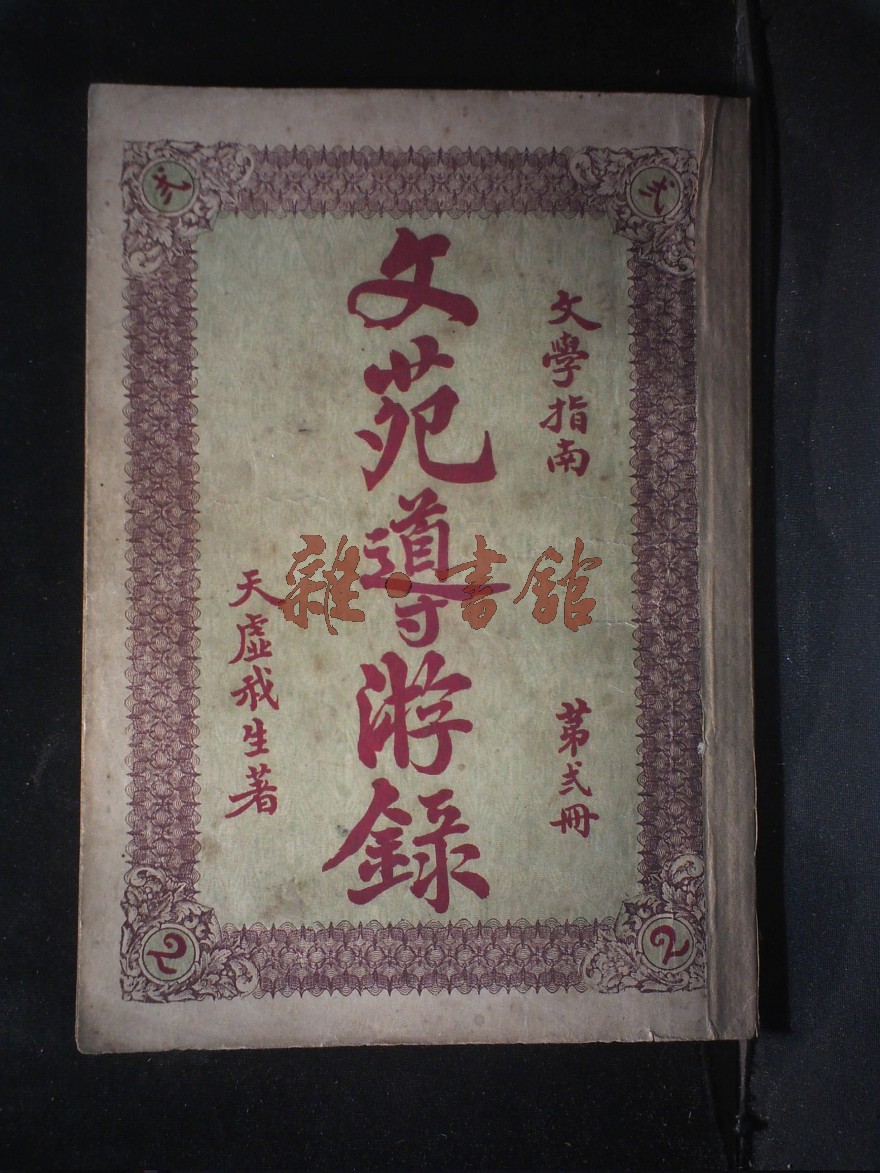 文學指南
第弍冊
文苑導游錄
天虛我生著
弍
弍
2
2
雜·書館